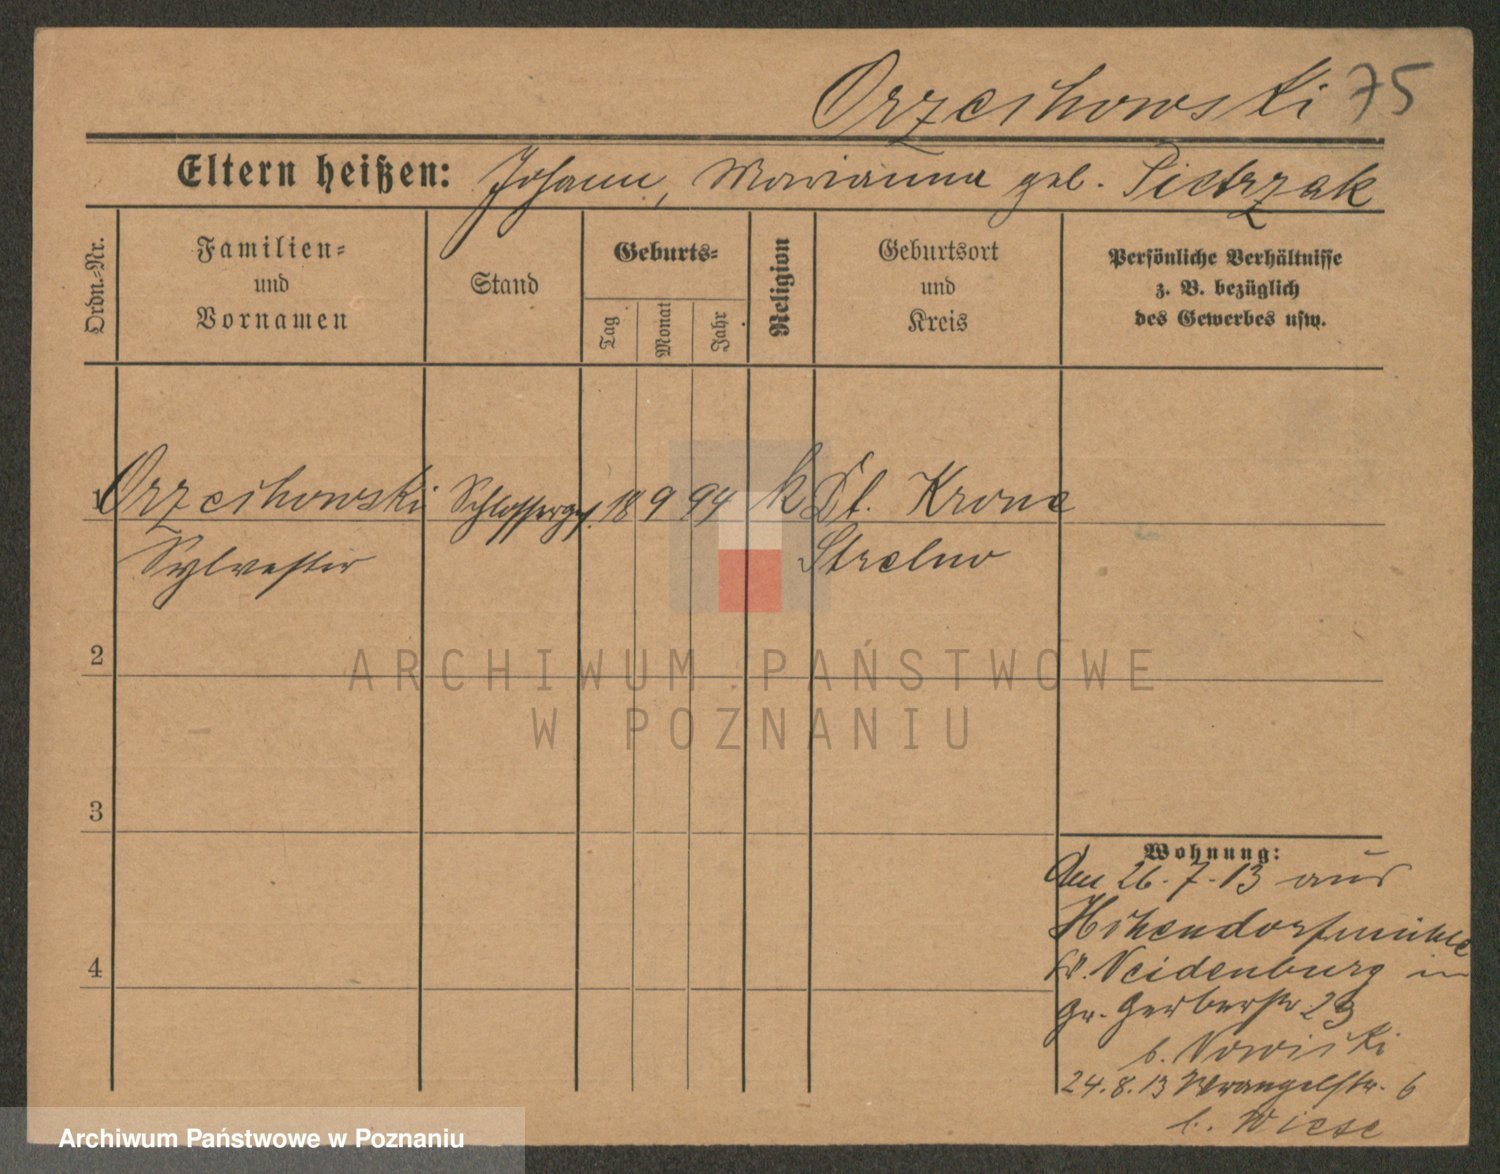 Orzechowski 75
Eltern heißen: Johann, Marianna geb. Pietrzak
Ordn.-Nr.
Familien-
und
Vornamen
Stand
Geburts-
Tag
Monat
Jahr
Religion
Geburtsort
und
Kreis
Persönliche Verhältnisse
z. B. bezüglich
des Gewerbes usw.
1 Orzechowski Schlosserges. 18 9 94 k Dt. Krone
Sylvester Strelno
2
3
4
Wohnung:
Am 26.7.13 aus
Hohendorfmühle
Kr. Neidenburg in
Gr. Gerberstr. 23
b. Nowicki
24.8.13 Wrangelstr. 6
b. Wiese
ARCHIWUM PAŃSTWOWE
W POZNANIU
Archiwum Państwowe w Poznaniu